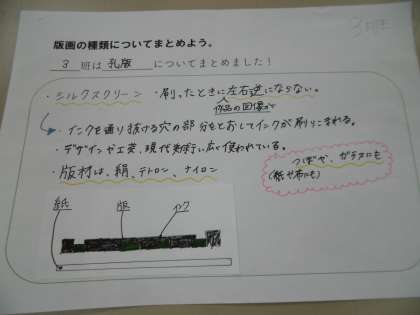 3班
版画の種類についてまとめよう。
3 班は 孔版 についてまとめました！
・シルクスクリーン ・刷ったときに左右逆にならない。
作品の図像が
・インクを通り抜ける穴の部分をとおしてインクが刷りこまれる。
・デザインや工芸、現代美術に広く使われている。
・版材は、絹、テトロン、ナイロン
つぼや、ガラスにも
(紙や布にも)
紙 版 インク